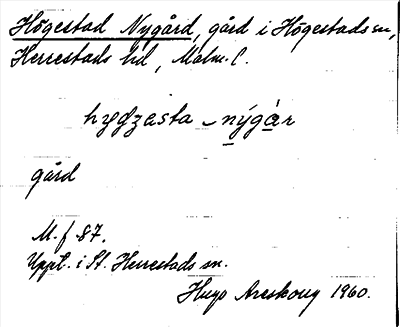 Högestad Nygård, gård i Högestads sn,
Herrestads hd, Malm. l.
nýgár
gård
M. f. 87.
Uppt. i St. Herrestads sn.
Hugo Areskoug 1960.